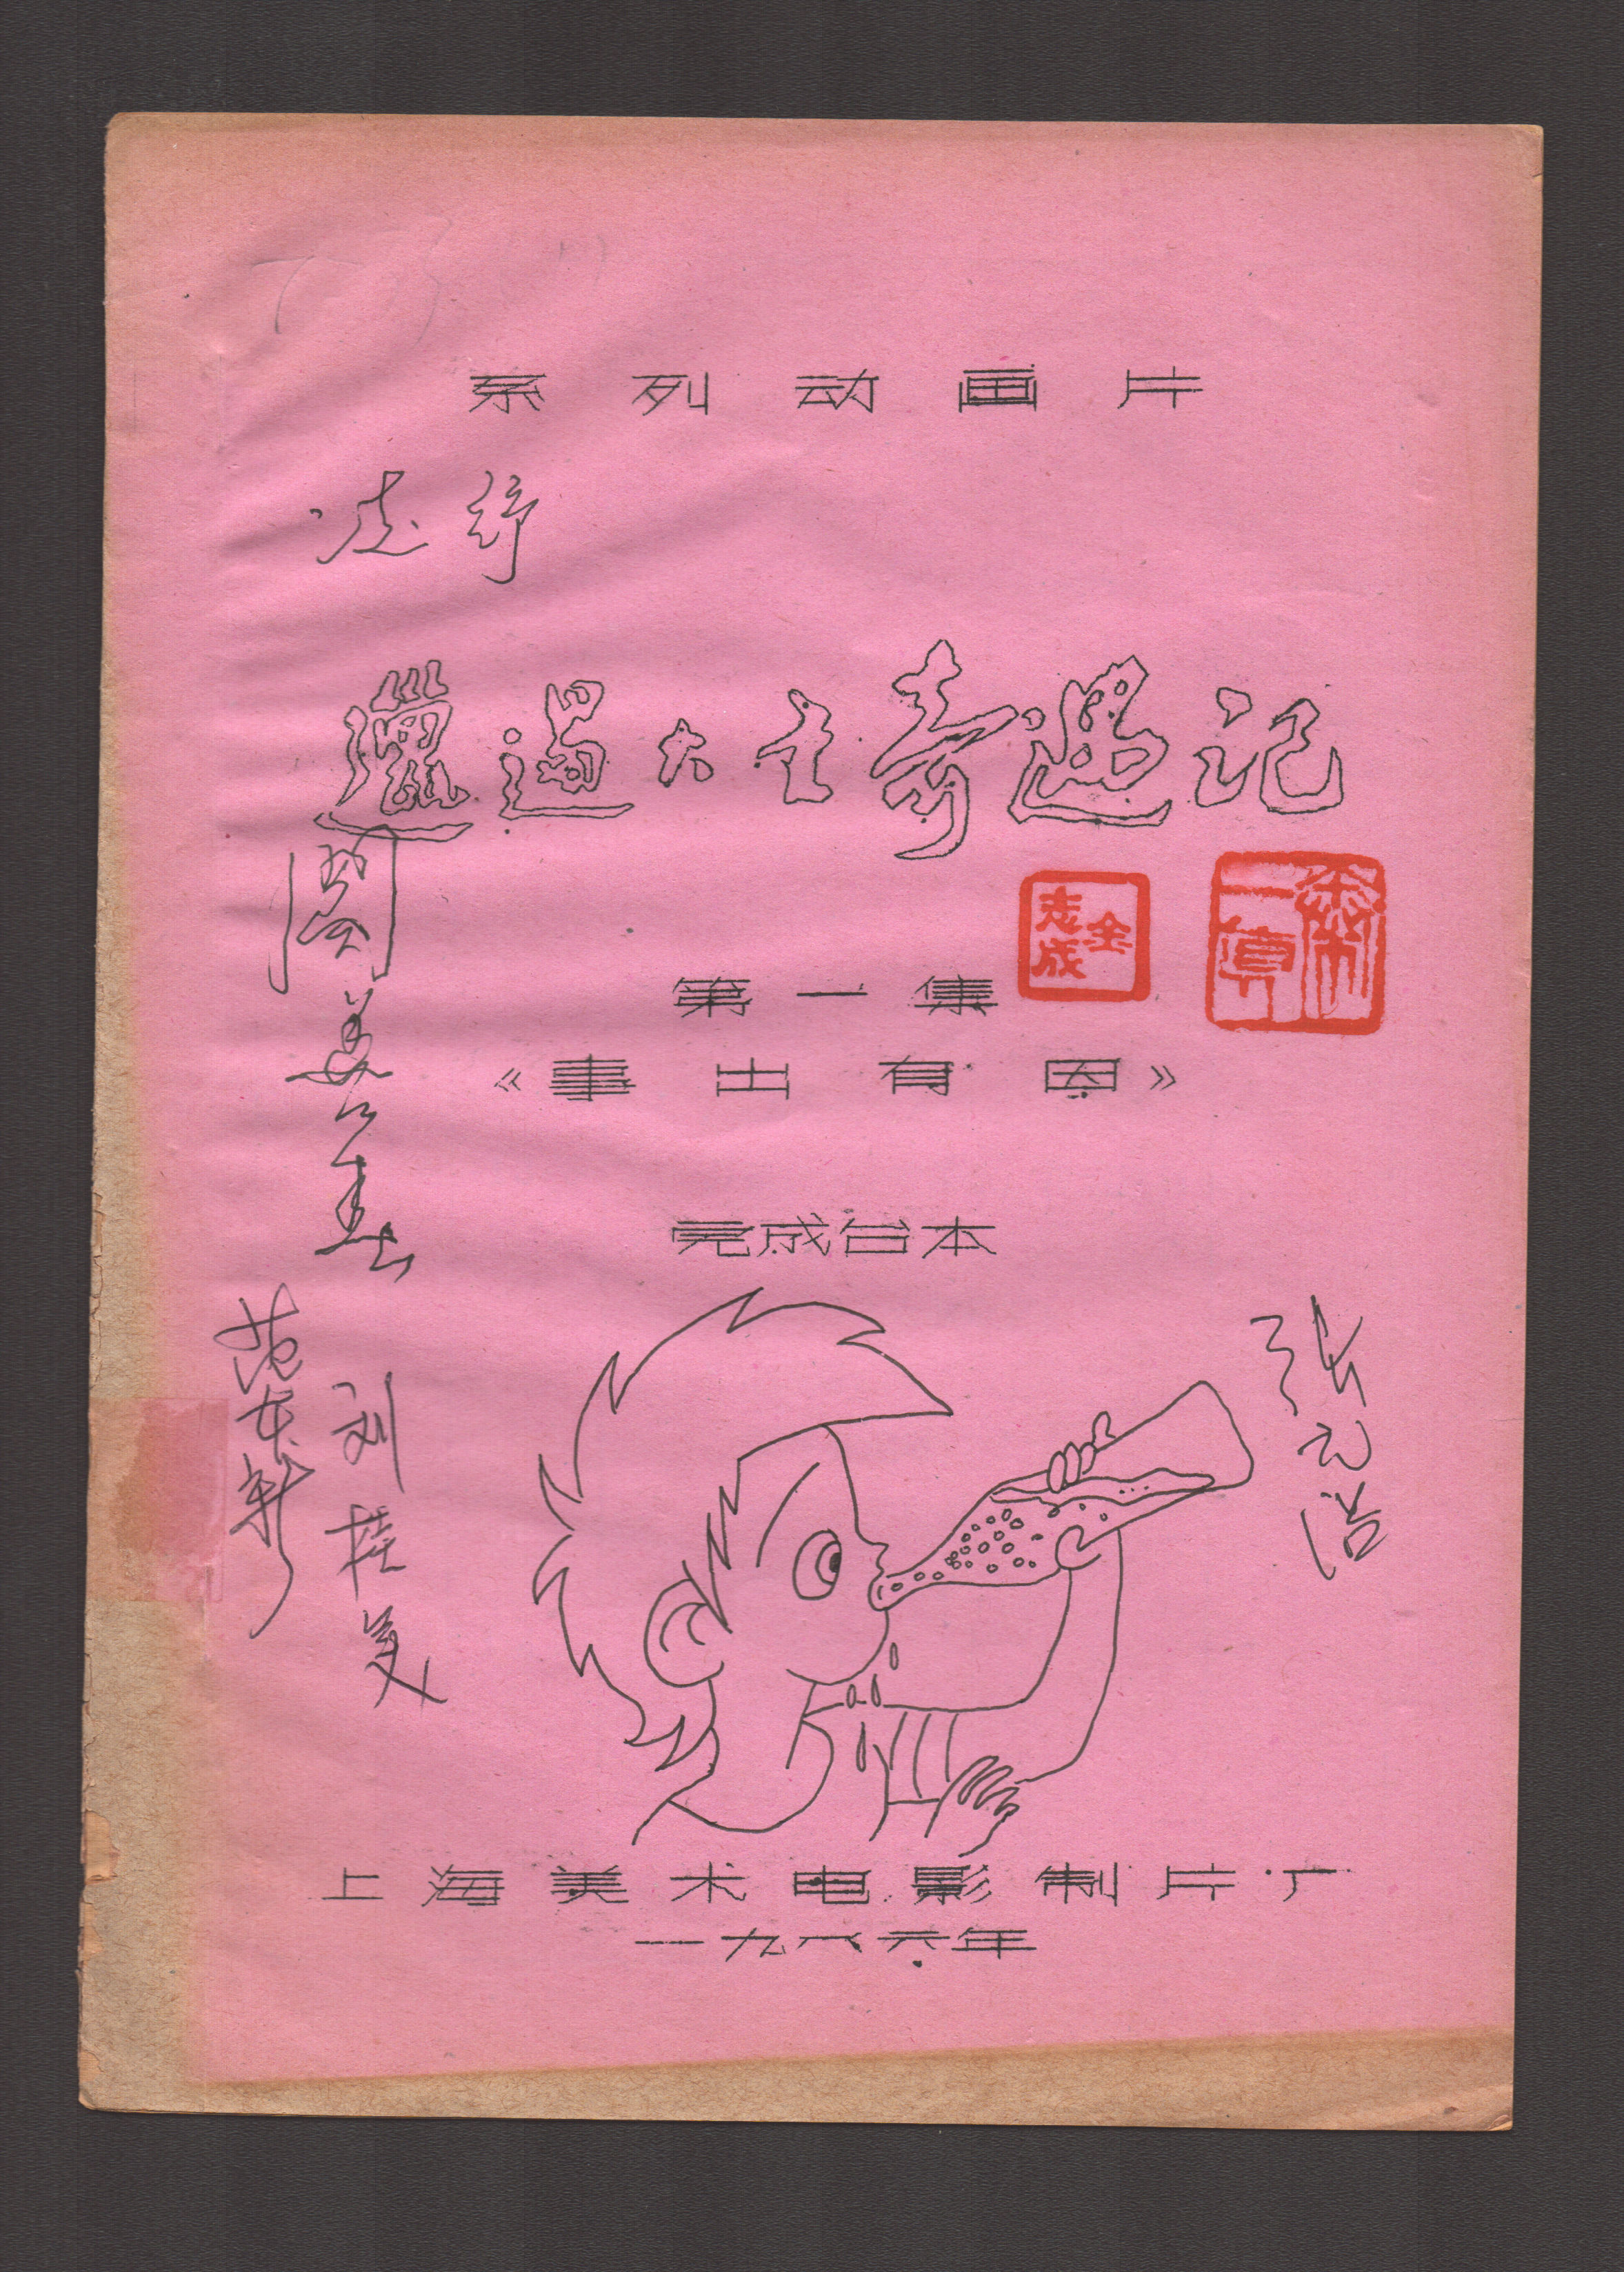 系列动画片
凌纾
邋遢大王奇遇记
金志成
秦一真
第一集
《事出有因》
阎善春
完成台本
范东新
刘桂英
张元浩
上海美术电影制片厂
一九八六年